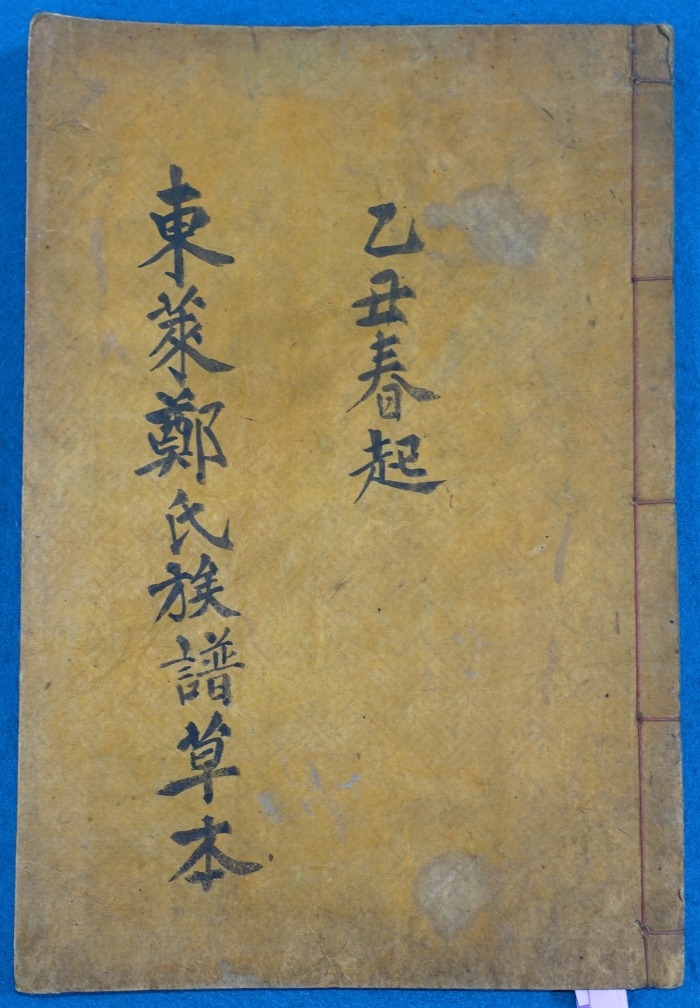 乙丑春起
東萊鄭氏族譜草本